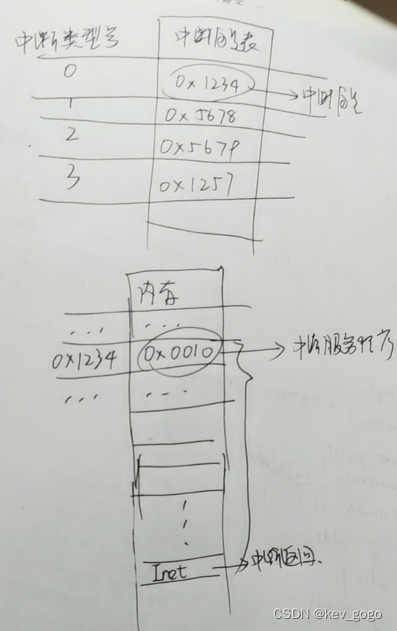 中断类型号 中断向量表
0 0x1234 中断向量
1 0x5678
2 0x5679
3 0x1257
内存
... ...
0x1234 0x0010 中断服务程序
... ...
Iret 中断返回.
CSDN @kev_gogo